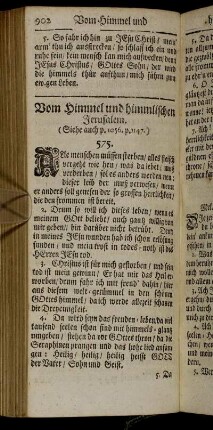 902 Vom Himmel und
5. So fahr ich hin zu JEsu Christ / mein
arm' thu ich ausstrecken / so schlaf ich ein und
ruhe fein / kein mensch kan mich aufwecken / denn
JEsus Christus / GOttes Sohn / der wird
die himmels thür aufthun / mich führen zum
ewigen Leben.
Vom Himmel und himmlischen
Jerusalem.
(Siehe auch p. 1056. p. 1147.)
575.
Alle menschen müssen sterben / alles fleisch
vergeht wie heu / was da lebet / muß
verderben / sol es anders werden neu
dieser leib der muß verwesen / wenn
er anders soll genesen der so grossen herrlichkeit /
die den frommen ist bereit.
2. Drum so will ich dieses leben / wenn es
meinem GOtt beliebt / auch ganz willig von
mir geben / bin darüber nicht betrübt. Denn
in meines JEsu wunden hab ich schon erlösung
funden / und mein trost in todes-noth ist des
HErren JEsu tod.
3. Christus ist für mich gestorben / und sein
tod ist mein gewinn / Er hat mir das Heil er-
worben / drum fahr ich mit freud' dahin / hier
aus diesem welt-getümmel in den schönen
GOttes himmel / da ich werde allezeit schauen
die Dreyeinigkeit.
4. Da wird seyn das freuden-leben / da viel
tausend seelen schon sind mit himmels-glanz
umgeben / stehen da vor GOttes thron / da die
Seraphinen prangen und das hohe lied anfan-
gen: Heilig / heilig / heilig heißt GOTT
der Vater / Sohn und Geist.
5. Da